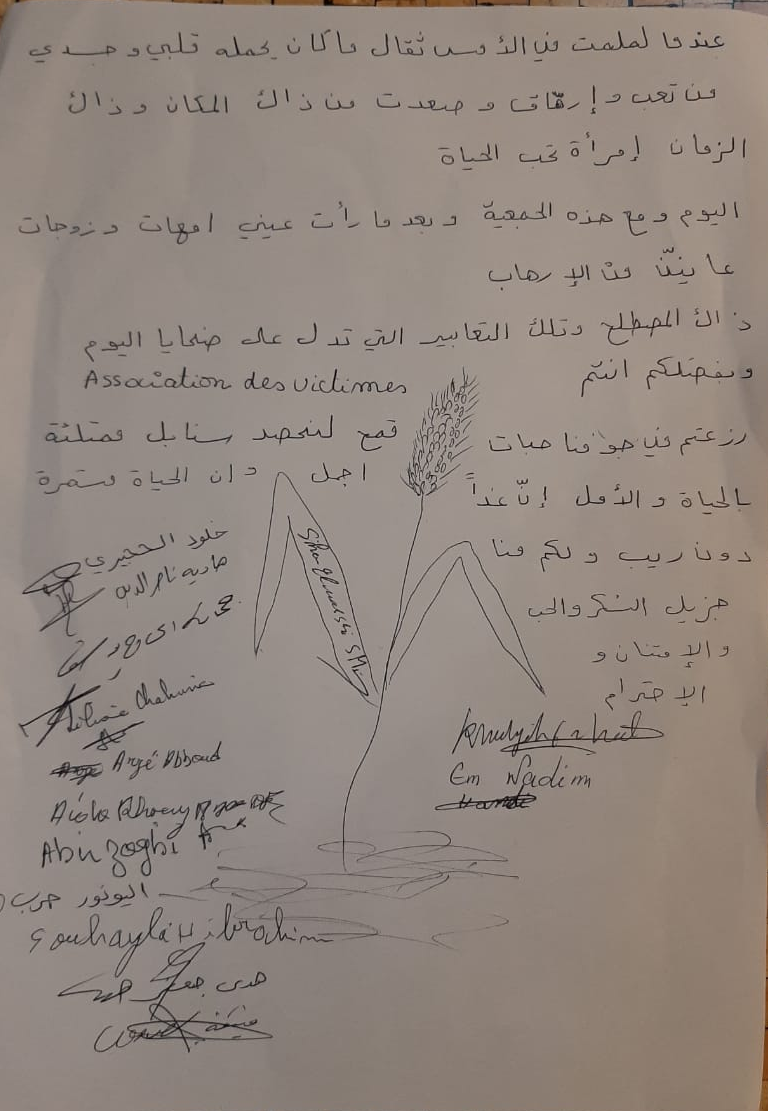 عندما لملمت في الأمس ثقال ما كان يحمله قلبي وجسدي
من تعب وإرهاق وصعدت من ذاك المكان وذاك
الزمان إمرأة تحب الحياة
اليوم ومع هذه الجمعية وبعد ما رأت عيني امهات وزوجات
عانينّ من الإرهاب
ذاك المصطلح وتلك التعابير التي تدل على ضحايا اليوم
وبفضلكم انتم Association des victimes
زرعتم في جوفنا حبات قمح لنحصد سنابل ممتلئة
بالحياة والأمل إنّ غداً اجمل وان الحياة مستمرة
دون ريب ولكم منا
جزيل الشكر والحب
والإمتنان و
الإحترام
خلود الحجيري
ناصر الدين
Chahine
Angé Abboud
Em Nadim
Aida
Abu Zogbi
حرب
Souhayla H ibrahim
هدى